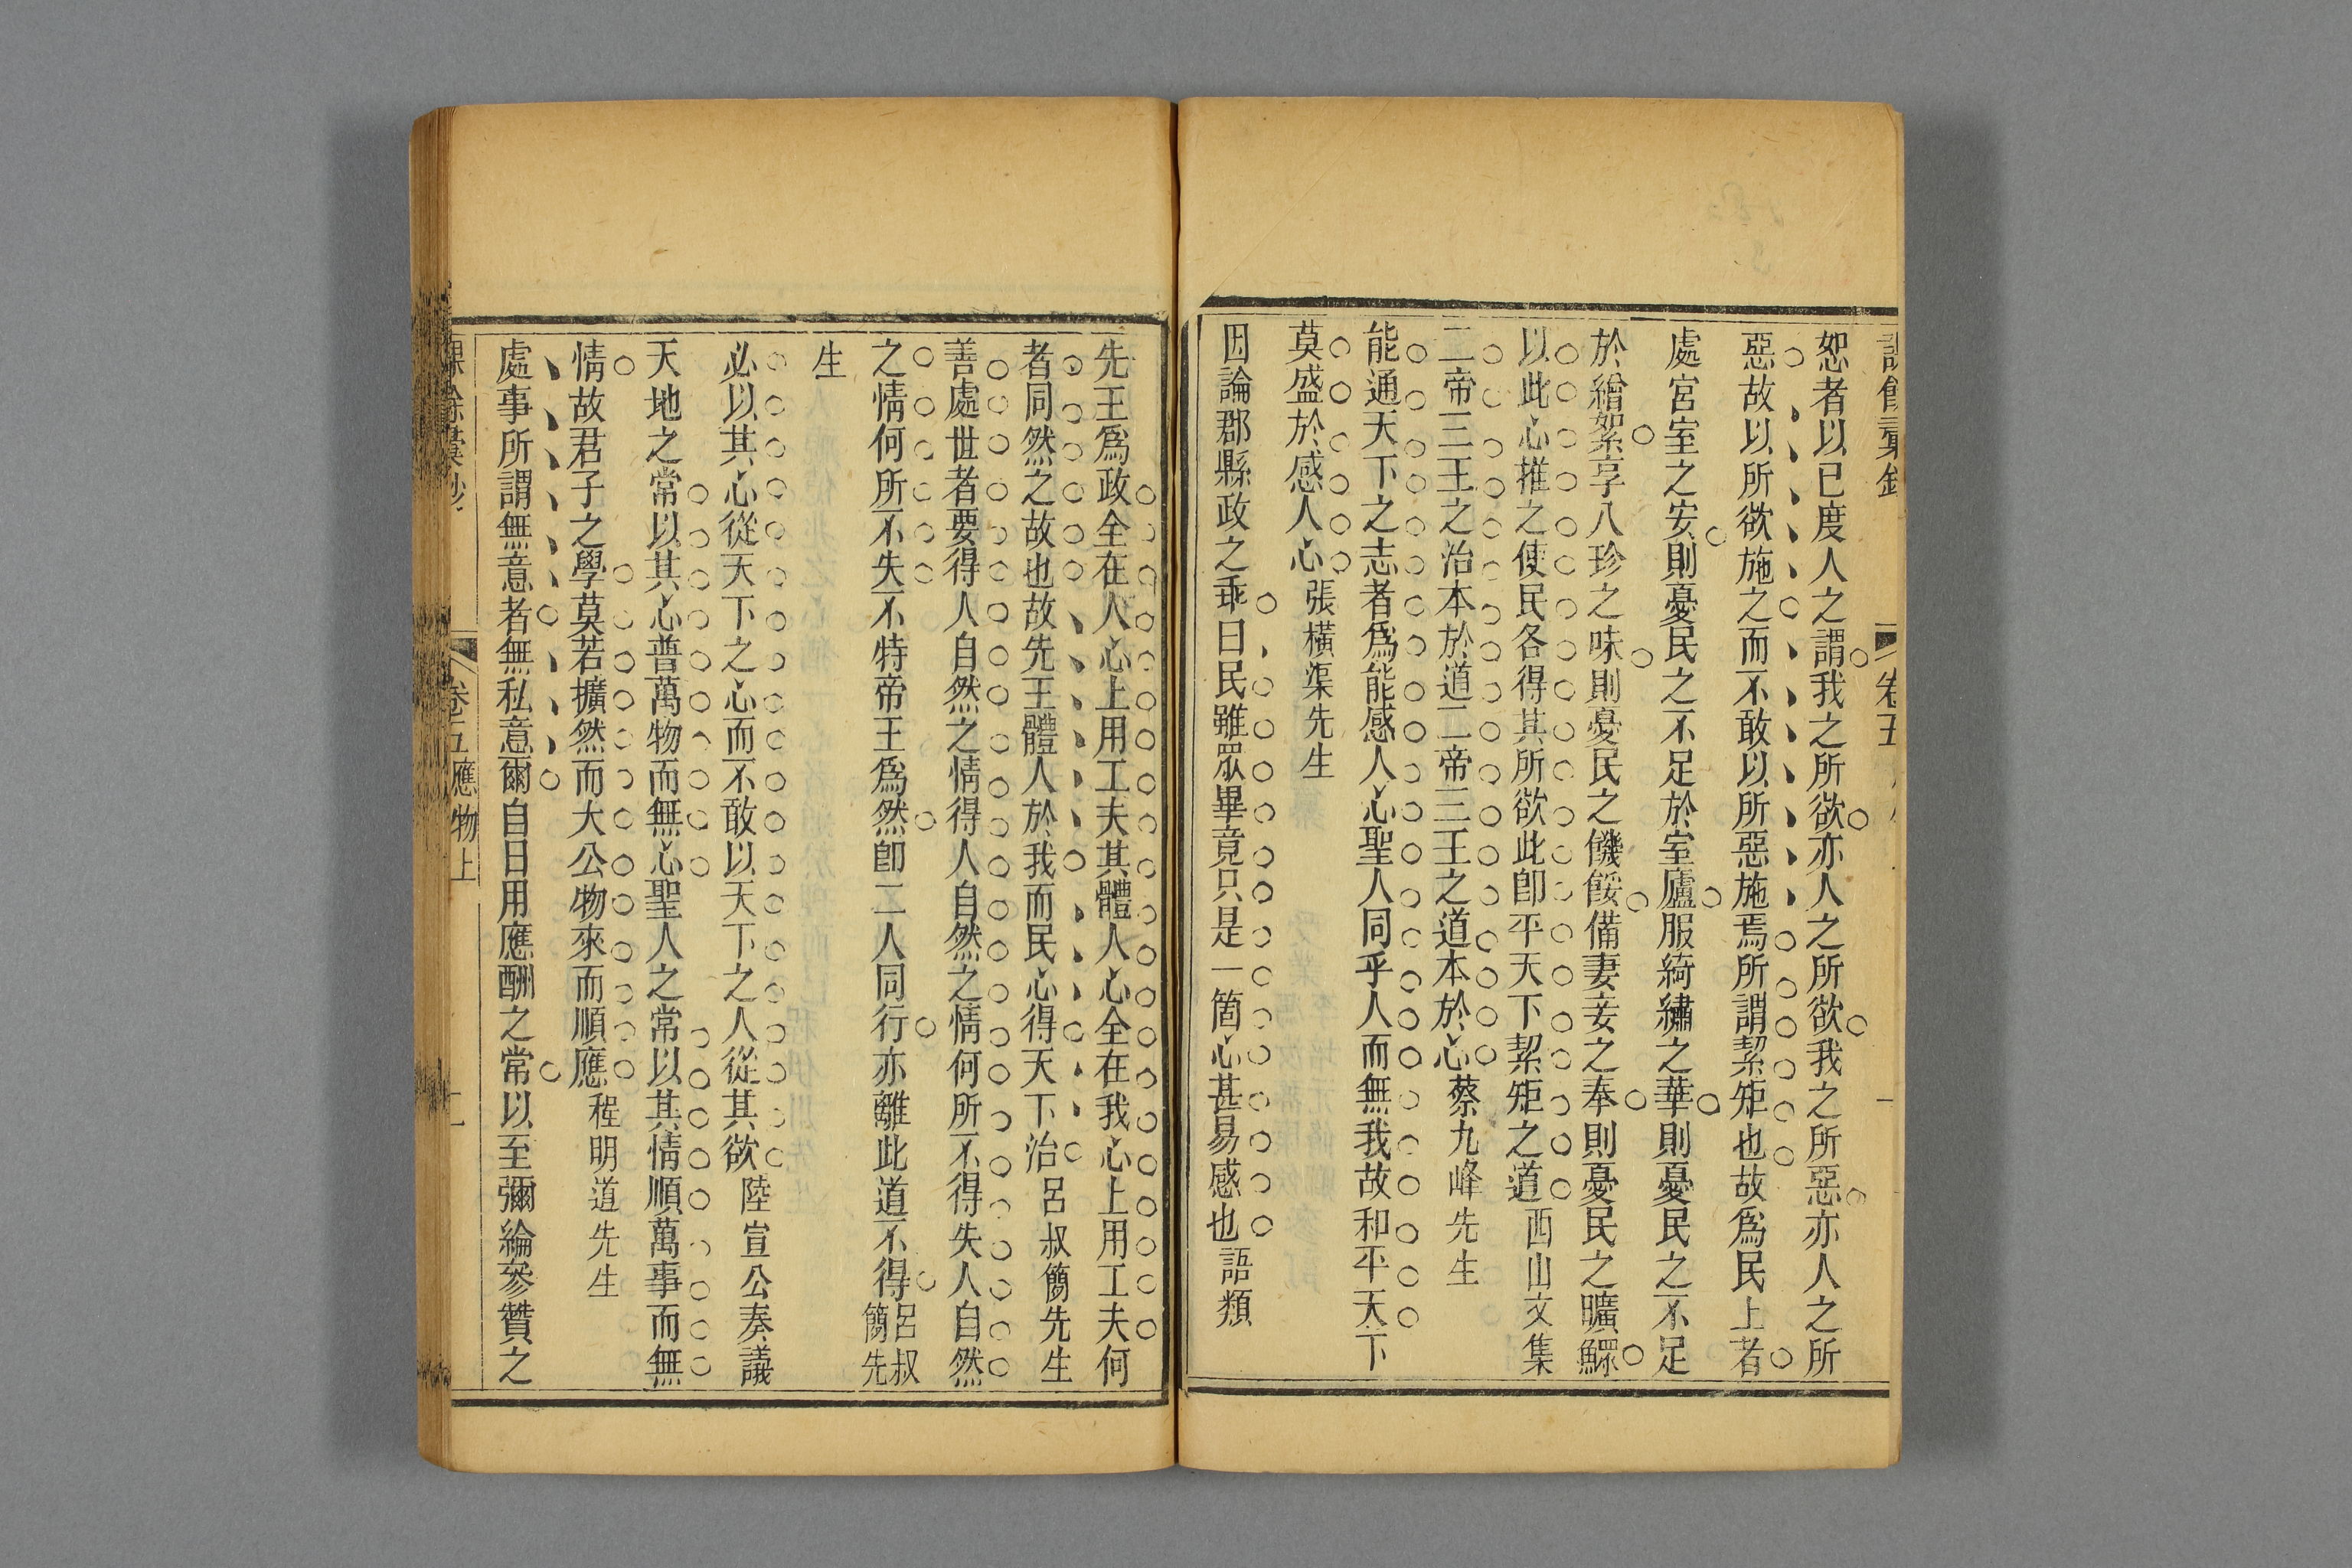 恕者以已度人之謂我之所欲亦人之所欲我之所惡亦人之所
惡故以所欲施之而不敢以所惡施焉所謂絜矩也故爲民上者
處宮室之安則憂民之不足於室廬服綺繡之華則憂民之不足
於繒絮享八珍之味則憂民之饑餒備妻妾之奉則憂民之曠鰥
以此心推之使民各得其所欲此卽平天下絜矩之道西山文集
二帝三王之治本於道二帝三王之道本於心蔡九峰先生
能通天下之志者爲能感人心聖人同乎人而無我故和平天下
莫盛於感人心張橫渠先生
因論郡縣政之乖曰民雖眾畢竟只是一箇心甚易感也語類
先王爲政全在人心上用工夫其體人心全在我心上用工夫何
者同然之故也故先王體人於我而民心得天下治呂叔簡先生
善處世者要得人自然之情得人自然之情何所不得失人自然
之情何所不失不特帝王爲然卽二人同行亦離此道不得呂叔簡先
生
必以其心從天下之心而不敢以天下之人從其欲陸宣公奏議
天地之常以其心普萬物而無心聖人之常以其情順萬事而無
情故君子之學莫若擴然而大公物來而順應程明道先生
處事所謂無意者無私意爾自日用應酬之常以至彌綸參贊之
卷五應物上